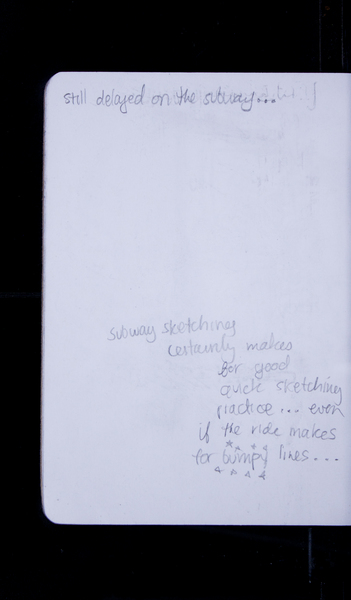 still delayed on the subway...
subway sketching
certainly makes
for good
quick sketching
practice... even
if the ride makes
for bumpy lines...